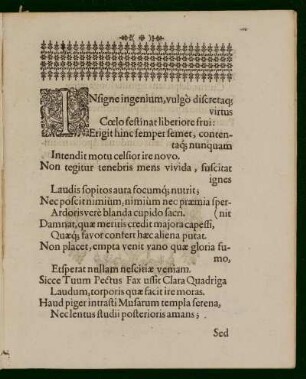 INsigne ingenium, vulgò discretaq;
virtus
Cœlo festinat liberiore frui:
Erigit hinc semper semet, conten-
taq; nunquam
Intendit motu celsior ire novo.
Non tegitur tenebris mens vivida, suscitat
ignes
Laudis sopitos auta focumq; nutrit;
Nec poscit nimium, nimium nec præmia sper-
Ardoris verè blanda cupido sacri. (nit
Damnat, quæ meruis credit majora capessi,
Quæq; favor confert hæc aliena putat.
Non placet, empta venit vano quæ gloria fu-
mo,
Et sperat nullam nescitiæ veniam.
Sicce Tuum Pectus Fax ussit Clara Quadriga
Laudum, torporis quæ facit ire moras.
Haud piger intrasti Musarum templa serena,
Nec lentus studii posterioris amans;
Sed